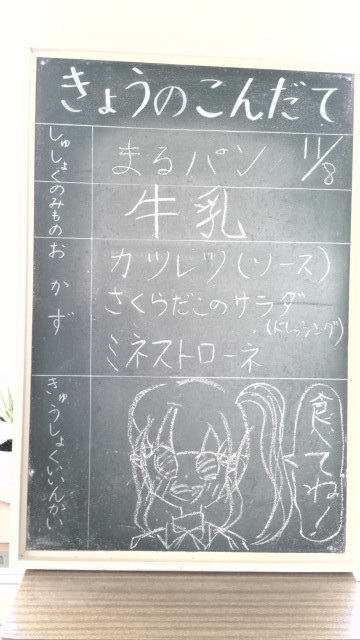 きょうのこんだて
しゅしょく まるパン 11/8
のみもの 牛乳
おかず カツレツ(ソース)
さくらだこのサラダ
(ドレッシング)
ミネストローネ
きゅうしょくいいんかい
食べてね!